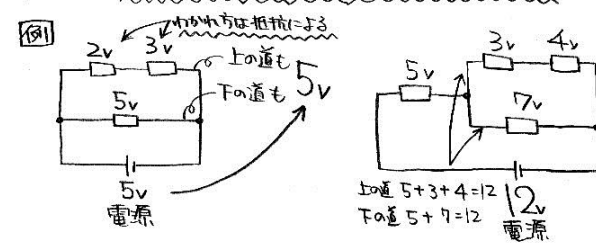 例
わかれ方は抵抗による
2v 3v
上の道も
5v
下の道も
5v
5v
電源
3v 4v
5v
7v
上の道 5+3+4=12
下の道 5+7=12
12v
電源